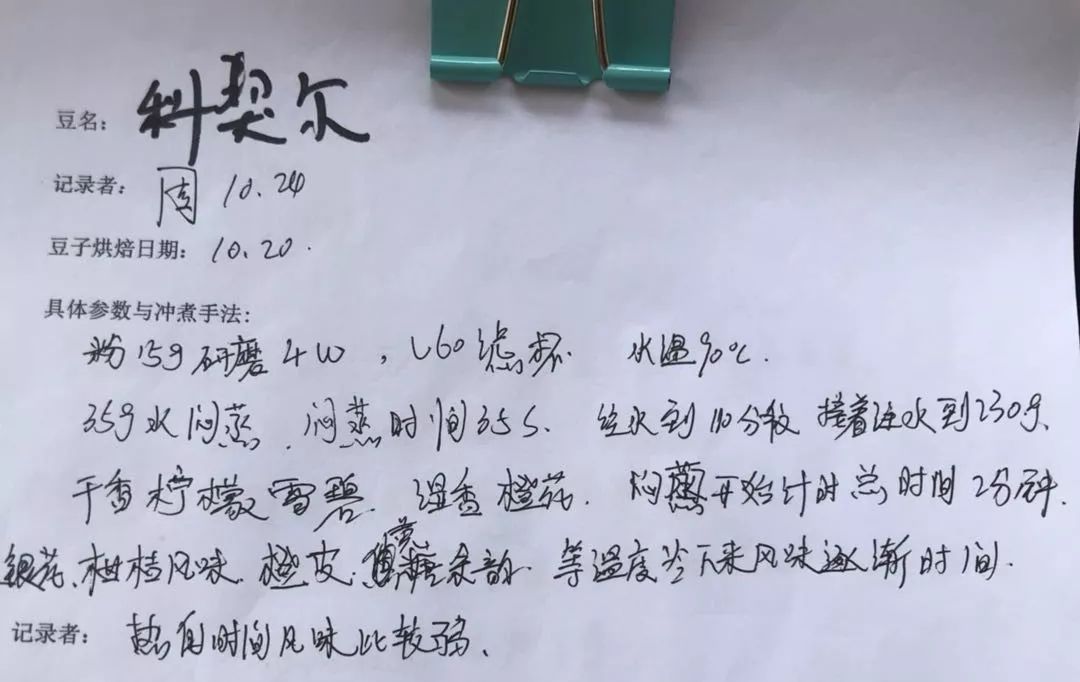 豆名: 科契尔
记录者: 周 10.24
豆子烘焙日期: 10.20.
具体参数与冲煮手法:
粉15g 研磨4W , V60滤杯 水温90℃.
35g水闷蒸、闷蒸时间35s、 注水到110分段 接着注水到230g、
干香柠檬雪碧、湿香橙花. 闷蒸开始计时总时间2分钟.
银花、柑桔风味、橙皮、余韵. 等温度冷下来风味逐渐时间.
记录者: 热的时间风味比较弱、